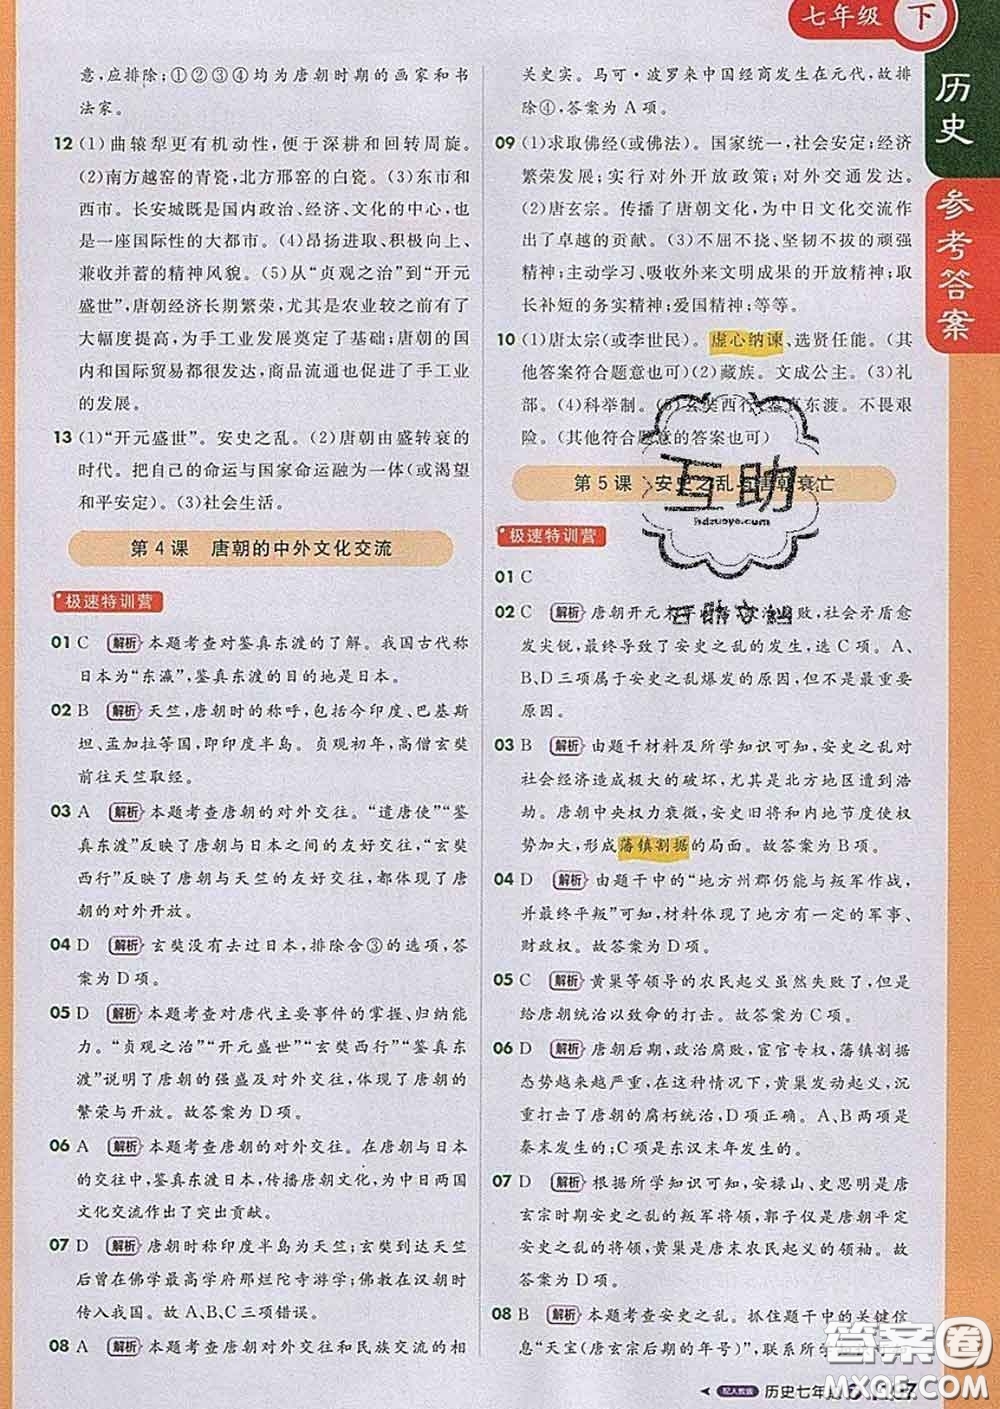 七年级 下
历史
参考答案
意,应排除;①②③④均为唐朝时期的画家和书
法家。
12 (1)曲辕犁更有机动性,便于深耕和回转周旋。
(2)南方越窑的青瓷,北方邢窑的白瓷。(3)东市和
西市。长安城既是国内政治、经济、文化的中心,也
是一座国际性的大都市。(4)昂扬进取、积极向上、
兼收并蓄的精神风貌。(5)从“贞观之治”到“开元
盛世”,唐朝经济长期繁荣,尤其是农业较之前有了
大幅度提高,为手工业发展奠定了基础;唐朝的国
内和国际贸易都很发达,商品流通也促进了手工业
的发展。
13 (1)“开元盛世”。安史之乱。(2)唐朝由盛转衰的
时代。把自己的命运与国家命运融为一体(或渴望
和平安定)。(3)社会生活。
第4课 唐朝的中外文化交流
极速特训营
01 C 解析 本题考查对鉴真东渡的了解。我国古代称
日本为“东瀛”,鉴真东渡的目的地是日本。
02 B 解析 天竺,唐朝时的称呼,包括今印度、巴基斯
坦、孟加拉等国,即印度半岛。贞观初年,高僧玄奘
前往天竺取经。
03 A 解析 本题考查唐朝的对外交往。“遣唐使”“鉴
真东渡”反映了唐朝与日本之间的友好交往,“玄奘
西行”反映了唐朝与天竺的友好交往,都体现了唐
朝的对外开放。
04 D 解析 玄奘没有去过日本,排除含③的选项,答
案为D项。
05 D 解析 本题考查对唐代主要事件的掌握、归纳能
力。“贞观之治”“开元盛世”“玄奘西行”“鉴真东
渡”说明了唐朝的强盛及对外交往,体现了唐朝的
繁荣与开放。故答案为D项。
06 A 解析 本题考查唐朝的对外交往。在唐朝与日本
的交往中,鉴真东渡日本,传播唐朝文化,为中日两国
文化交流作出了突出贡献。
07 D 解析 唐朝时称印度半岛为天竺;玄奘到达天竺
后曾在佛学最高学府那烂陀寺游学;佛教在汉朝时
传入我国。故A、B、C三项错误。
08 A 解析 本题考查唐朝的对外交往和民族交流的相
关史实。马可·波罗来中国经商发生在元代,故排
除④,答案为A项。
09 (1)求取佛经(或佛法)。国家统一,社会安定;经济
繁荣发展;实行对外开放政策;对外交通发达。
(2)唐玄宗。传播了唐朝文化,为中日文化交流作
出了卓越的贡献。(3)不屈不挠、坚韧不拔的顽强
精神;主动学习、吸收外来文明成果的开放精神;取
长补短的务实精神;爱国精神;等等。
10 (1)唐太宗(或李世民)。虚心纳谏、选贤任能。(其
他答案符合题意也可)(2)藏族。文成公主。(3)礼
部。(4)科举制。(5)玄奘西行、鉴真东渡。不畏艰
险。(其他符合题意的答案也可)
第5课 安史之乱与唐朝衰亡
极速特训营
01 C
02 C 解析 唐朝开元末年以后,政治腐败,社会矛盾愈
发尖锐,最终导致了安史之乱的发生,选C项。A、
B、D三项属于安史之乱爆发的原因,但不是最重要
原因。
03 B 解析 由题干材料及所学知识可知,安史之乱对
社会经济造成极大的破坏,尤其是北方地区遭到浩
劫。唐朝中央权力衰微,安史旧将和内地节度使权
势加大,形成藩镇割据的局面。故答案为B项。
04 D 解析 由题干中的“地方州郡仍能与叛军作战,
并最终平叛”可知,材料体现了地方有一定的军事、
财政权。故答案为D项。
05 C 解析 黄巢等领导的农民起义虽然失败了,但是
给唐朝统治以致命的打击。故答案为C项。
06 D 解析 唐朝后期,政治腐败,宦官专权,藩镇割据
态势越来越严重,在这种情况下,黄巢发动起义,沉
重打击了唐朝的腐朽统治,D项正确。A、B两项是
秦末发生的;C项是东汉末年发生的。
07 D 解析 根据所学知识可知,安禄山、史思明是唐
玄宗时期安史之乱的叛军将领,郭子仪是唐朝平定
安史之乱的将领,黄巢是唐末农民起义的领袖。故
答案为D项。
08 B 解析 本题考查安史之乱。抓住题干中的关键信
息“天宝(唐玄宗后期的年号)”,联系所学
互助
hdzuoye.com
答案圈
配人教版 历史七年